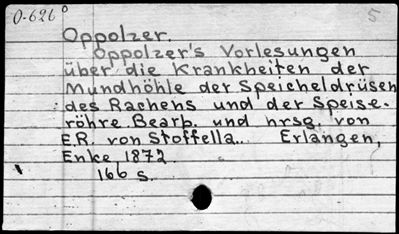 O-626° 5
Oppolzer.
Oppolzer's Vorlesungen
über die Krankheiten der
Mundhöhle der Speicheldrüsen
des Rachens und der Speise-
röhre. Bearb. und hrsg. von
E.R. von Stoffella.. Erlangen,
Enke, 1872.
166 s.